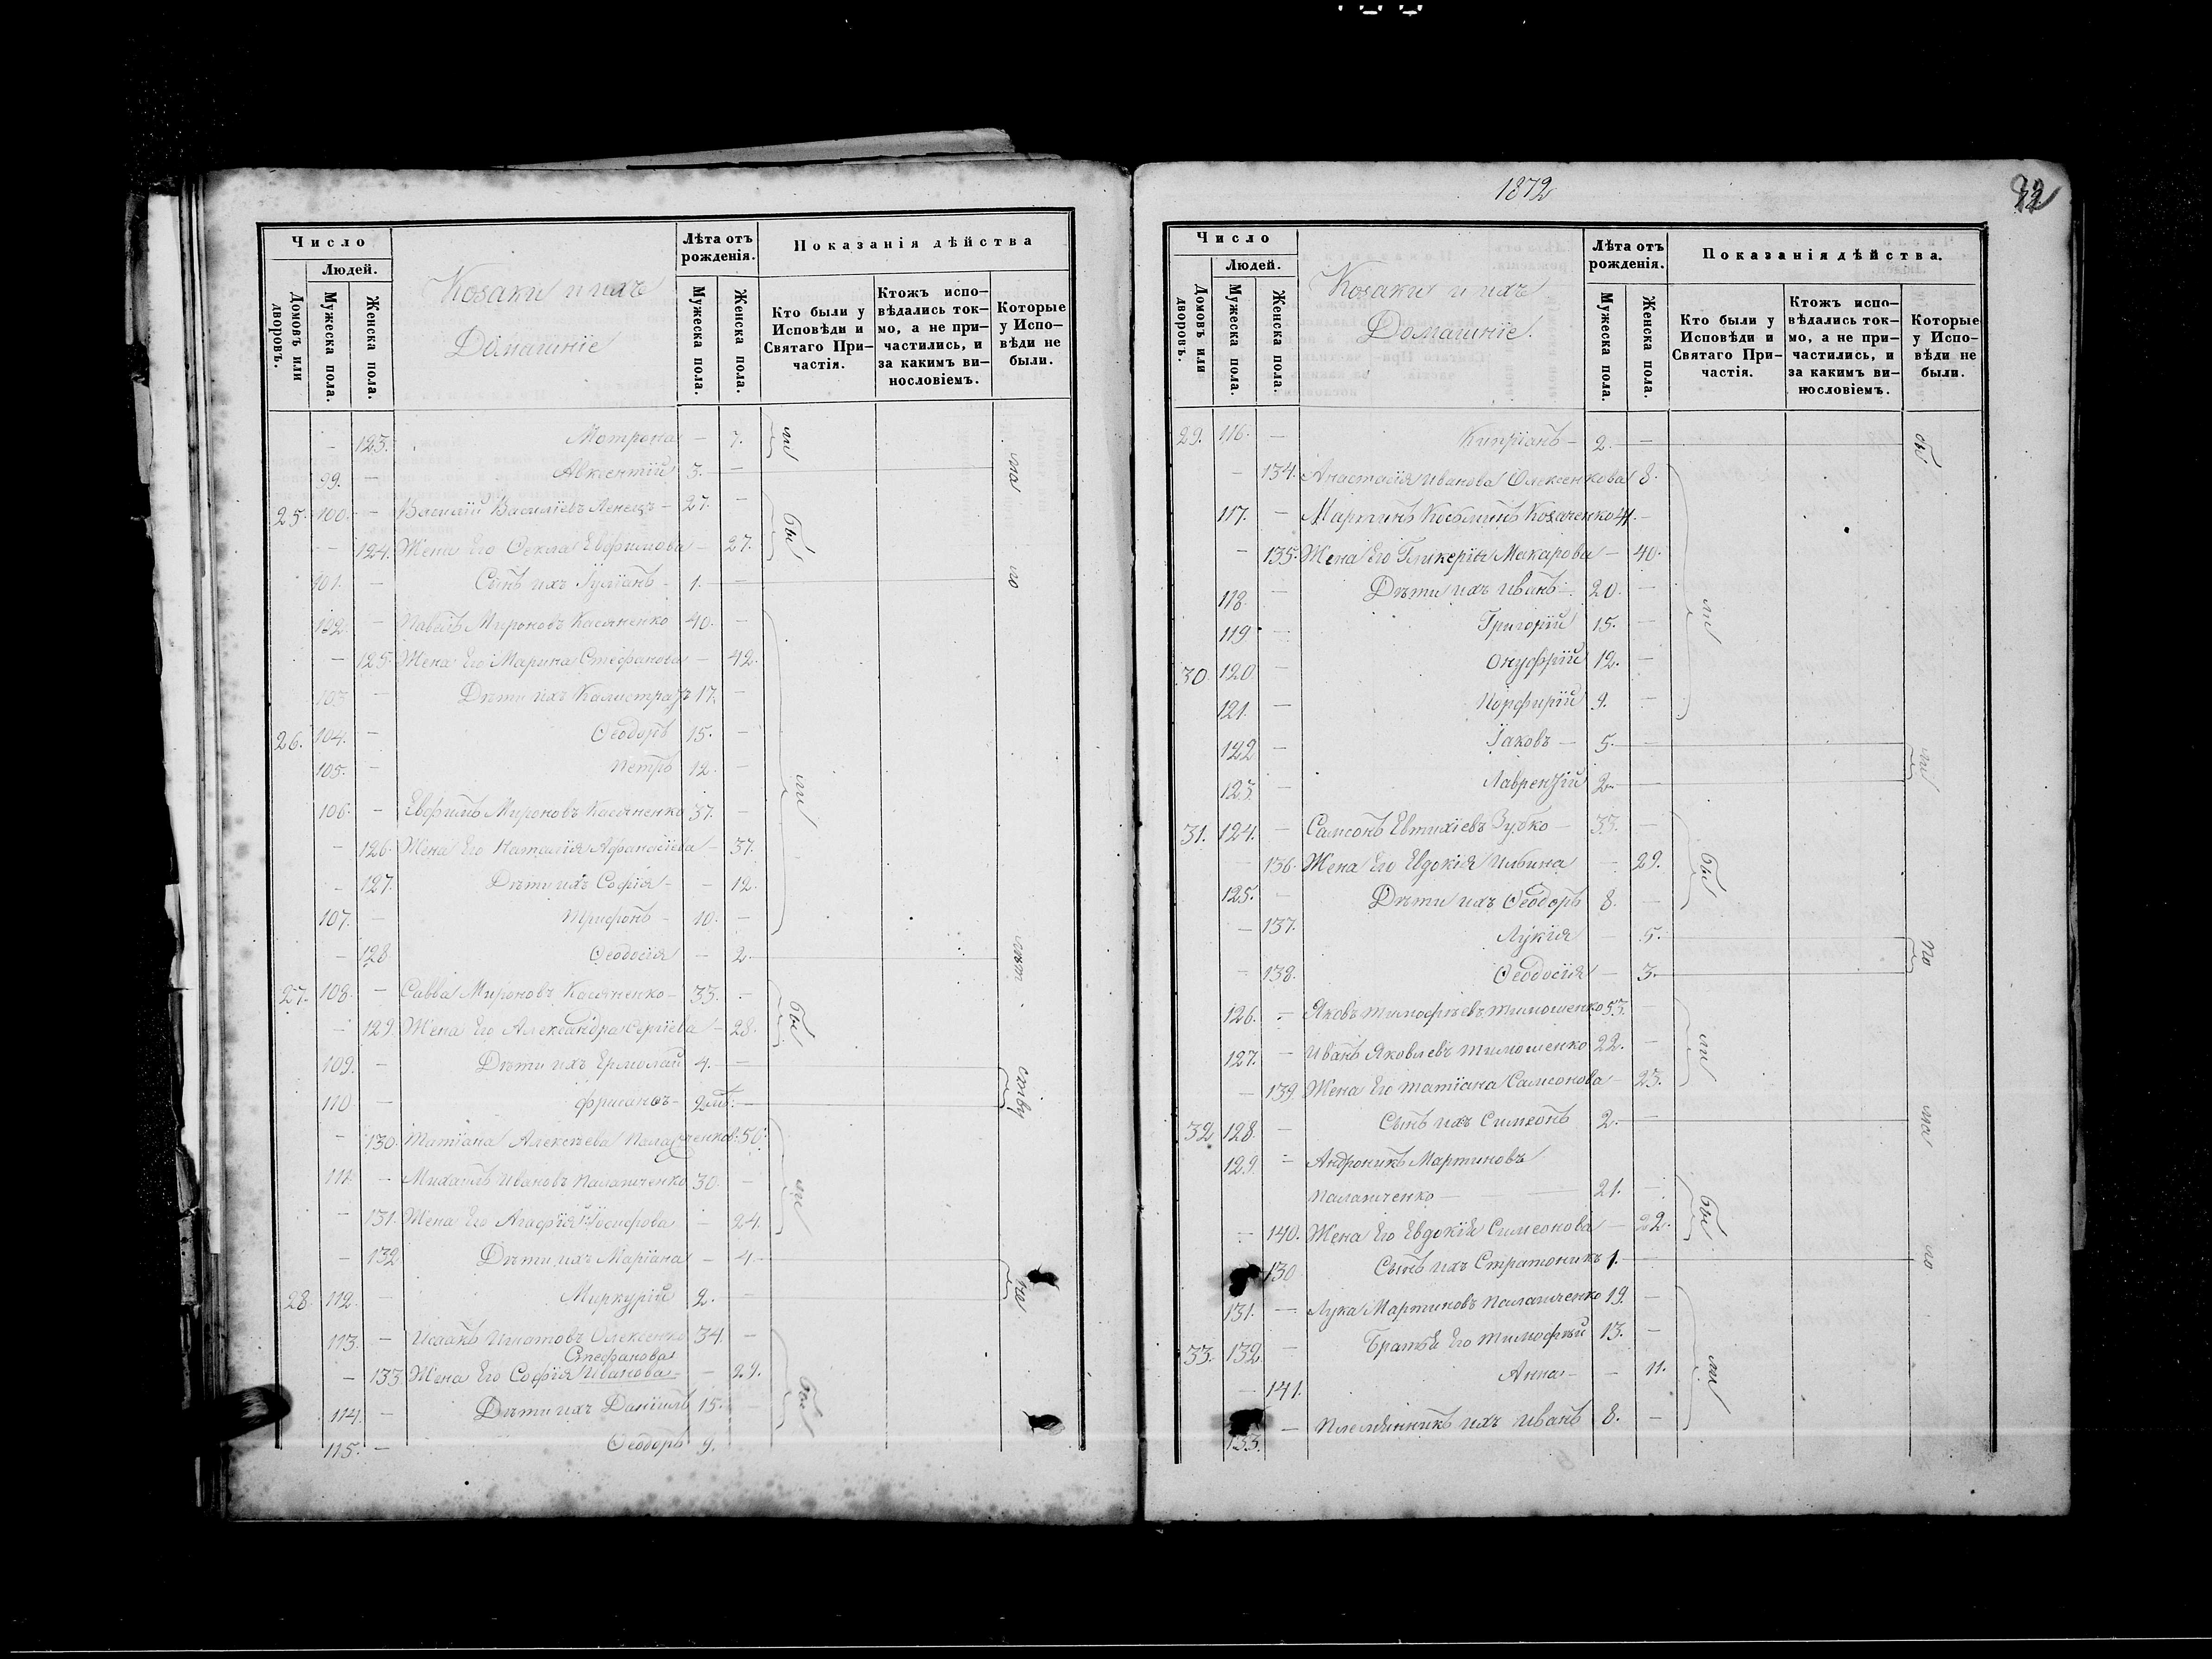 Число
Людей.
Домовъ или дворовъ.
Мужеска пола.
Женска пола.
Козаки и ихъ
Домашніе
Лѣта отъ рожденія.
Мужеска пола.
Женска пола.
Показанія дѣйства
Кто были у Исповѣди и Святаго Причастія.
Ктожъ исповѣдались токмо, а не причастились, и за какимъ винословіемъ.
Которые у Исповѣди не были.
— 123. Мотрона — 7.
99. — Авксентій 3. —
25. 100. — Василій Василіевъ Ленецъ — 27. —
— 124. Жена Его Ѳекла Евфимова — 27.
101. — Сынъ ихъ Іуліанъ — 1. —
102. — Павелъ Мироновъ Касяненко 40. —
— 125. Жена Его Марина Стефанова — 42.
103 — Дѣти ихъ Калистратъ 17. —
26. 104. — Ѳеодоръ 15. —
105. — Петръ 12. —
106. — Евфимъ Мироновъ Касяненко 37. —
— 126. Жена Его Наталія Афанасіева — 37.
— 127. Дѣти ихъ Софія — — 12.
107. — Трифонъ — 10. —
— 128 Ѳеодосія — 2.
27. 108. — Савва Мироновъ Касяненко — 33. —
— 129. Жена Его Александра Сергіева — 28.
109. — Дѣти ихъ Ермолай 4. —
110 —
— 130. Татіана Алексѣева 50.
111. — Михаилъ Ивановъ Палащенко 30. —
— 131. Жена Его Агафія Іосифова — 24.
— 132 Дѣти ихъ Маріана — 4.
28. 112. — Меркурій 2. —
113. — Исаакъ Игнатовъ Олексенко 34. —
Стефанова
— 133 Жена Его Софія Иванова — — 29.
114. — Дѣти ихъ Даніилъ 15. —
115. — Ѳеодоръ 9.
ли
на
бы
ло
ли
лѣт
бы
ли
бы
1872
Число
Людей.
Домовъ или дворовъ.
Мужеска пола.
Женска пола.
Козаки и ихъ
Домашніе.
Лѣта отъ рожденія.
Мужеска пола.
Женска пола.
Показанія дѣйства.
Кто были у Исповѣди и Святаго Причастія.
Ктожъ исповѣдались токмо, а не причастились, и за какимъ винословіемъ.
Которые у Исповѣди не были.
29. 116. — Кипріанъ — 2. —
— 134. Анастасія Иванова Олексенкова 8.
117. — Мартинъ Косьминъ Козаченко 41. —
— 135. Жена Его Гликерія Макарова — 40.
118. — Дѣти ихъ Иванъ 20. —
119 — Григорій 15. —
30. 120 — Онуфрій 12. —
121. — Порфирій 9. —
122 — Іаковъ — 5. —
123 — Лаврентій 2. —
31. 124. — Самсонъ Евтихіевъ Зубко — 33. —
— 136. Жена Его Евдокія Ильина — 29.
125. — Дѣти ихъ Ѳеодоръ 8. —
— 137. Лукія — 5.
— 138. Ѳеодосія — 3.
126. — Яковъ Тимофѣевъ Тимошенко 53. —
127. — Иванъ Яковлевъ Тимошенко 22. —
— 139 Жена Его Татіана Самсонова — 23.
32 128. — Сынъ ихъ Симеонъ 2. —
129. — Андроникъ Мартиновъ
Палащенко — 21. —
— 140. Жена Его Евдокія Симеонова — 22.
130 Сынъ ихъ Стратоникъ 1. —
131. — Лука Мартиновъ Палащенко 19. —
33. 132. — Братья Его Тимофѣй 13. —
— 141. Анна — — 11.
133. — Племянникъ ихъ Иванъ 8. —
ли
бы
по
ли
на
бы
ло
ли